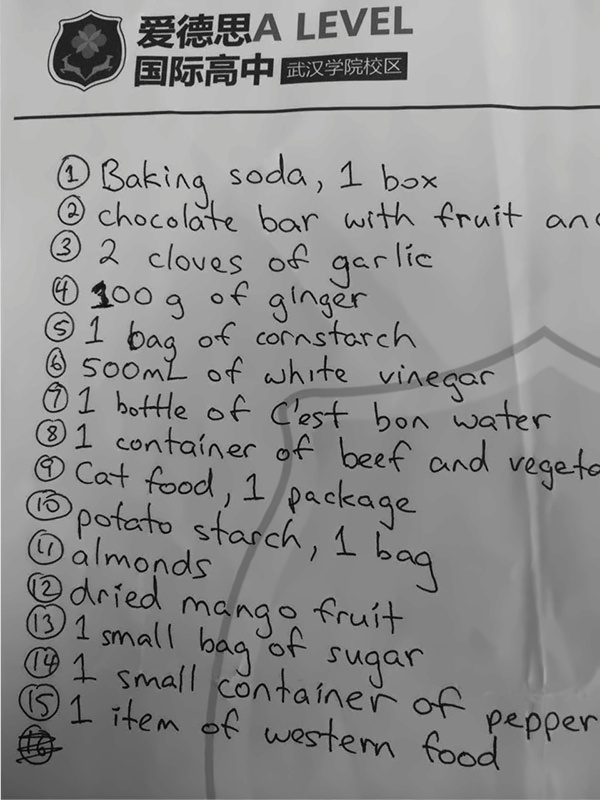 爱德思A LEVEL
国际高中 武汉学院校区
① Baking soda, 1 box
② chocolate bar with fruit
③ 2 cloves of garlic
④ 100 g of ginger
⑤ 1 bag of cornstarch
⑥ 500mL of white vinegar
⑦ 1 bottle of C'est bon water
⑧ 1 container of beef and
⑨ Cat food, 1 package
⑩ potato starch, 1 bag
⑪ almonds
⑫ dried mango fruit
⑬ 1 small bag of sugar
⑭ 1 small container of pepper
⑮ 1 item of western food